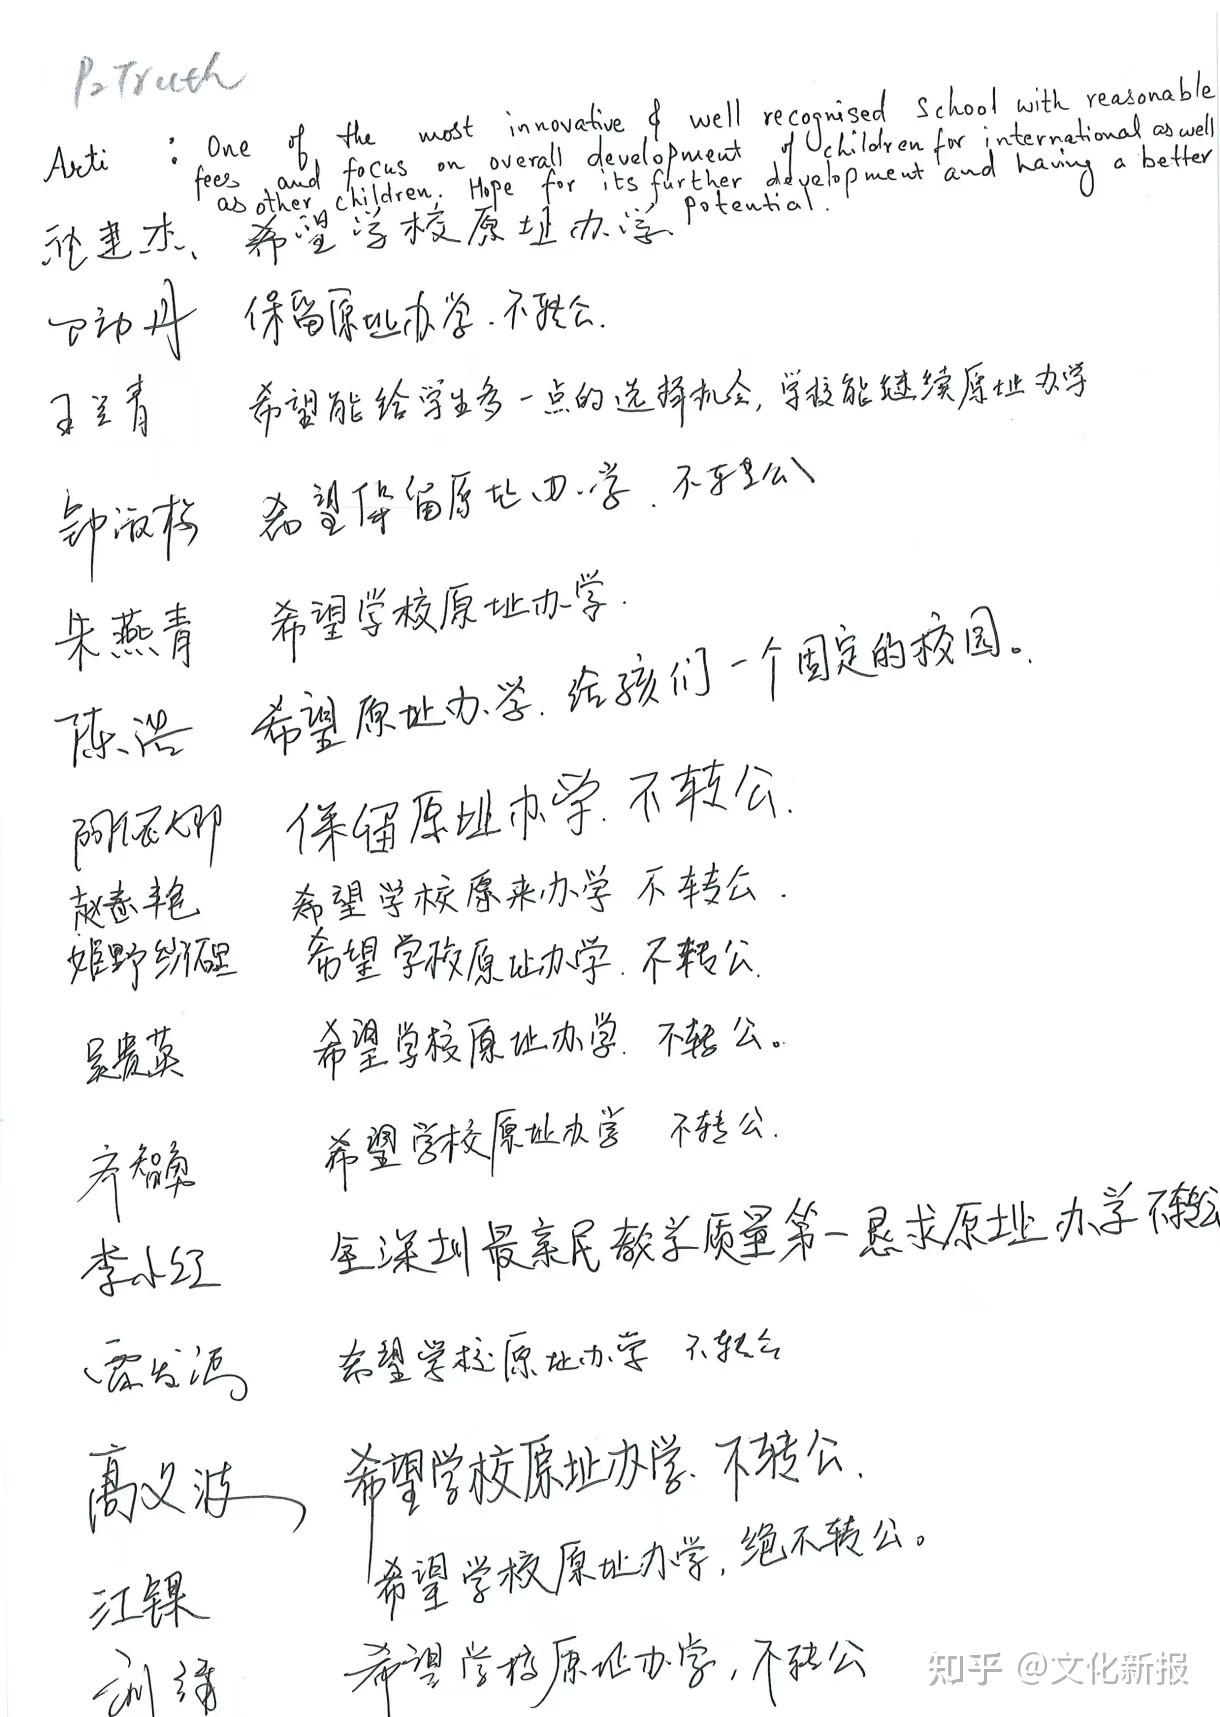 P2 Truth
Arti : One of the most innovative & well recognised School with reasonable
fees and focus on overall development of children for international as well
as other children. Hope for its further development and having a better
potential.
建杰、 希望学校原址办学.
丹 保留原址办学.不转公.
王兰青 希望能给学生多一点的选择机会,学校能继续原址办学
钟淑梅 希望保留原址办学.不转公
朱燕青 希望学校原址办学.
陈浩 希望原址办学.给孩们一个固定的校园。
保留原址办学.不转公.
赵春艳 希望学校原来办学 不转公.
姬野纱 希望学校原址办学.不转公.
吴贵英 希望学校原址办学.不转公。
齐智勇 希望学校原址办学 不转公.
李小红 全深圳最亲民教学质量第一恳求原址办学不转公
希望学校原址办学 不转公
高义波 希望学校原址办学.不转公.
江锞 希望学校原址办学,绝不转公。
希望学校原址办学,不转公
知乎 @文化新报